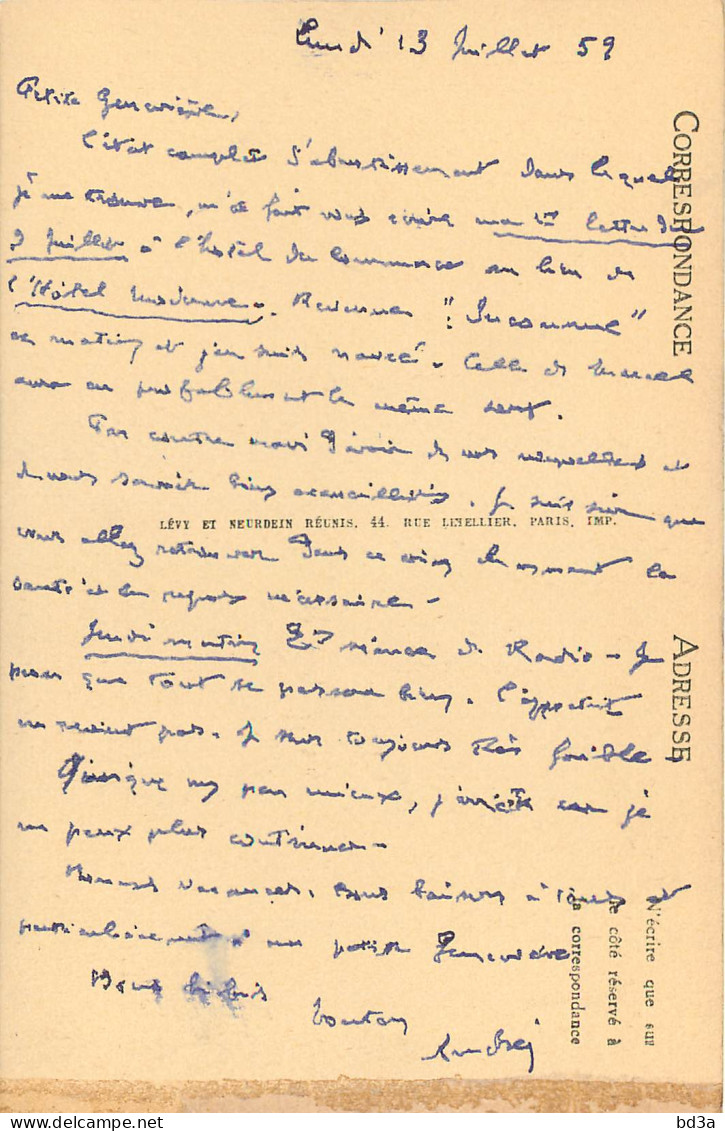 Lundi 13 Juillet 59
Petite Geneviève,
L'état complet d'abrutissement dans lequel
je me trouve, m'a fait vous écrire ma 1ère lettre du
9 Juillet à l'hôtel du Commerce au lieu de
l'Hôtel Moderne. Revenue "Inconnue"
ce matin et j'en suis navré. Celle de Marcel
aura eu probablement le même sort.
Par contre ravi d'avoir de vos nouvelles et
de vous savoir bien. Je suis sûr que
vous allez retrouver dans ce coin charmant la
santé et le repos nécessaire -
Jeudi matin 2e séance de Radio - Je
pense que tout se passera bien. L'appétit
ne revient pas. Je suis toujours très faible
Quoique un peu mieux, j'arrête car je
ne peux plus continuer -
Bonnes vacances. Bons baisers à tous et
particulièrement à ma petite Geneviève
Bons
tonton
André
CORRESPONDANCE
ADRESSE
LÉVY ET NEURDEIN RÉUNIS, 44, RUE LETELLIER, PARIS, IMP.
N'écrire que sur
le côté réservé à
la correspondance
bd3a